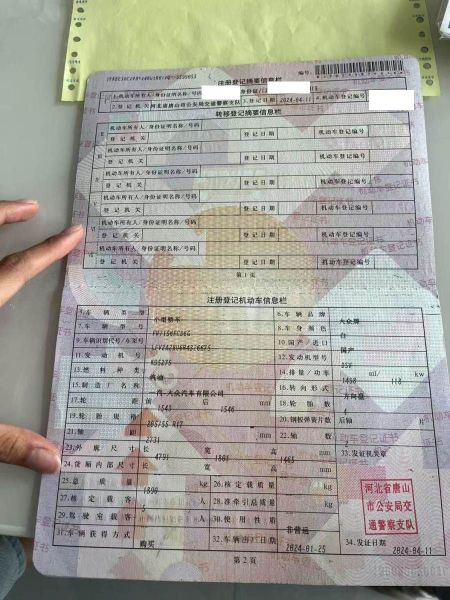 注册登记摘要信息栏
编号:
1.机动车所有人/身份证明名称/号码
2.登记机关 河北省唐山市公安局交通警察支队 3.登记日期 2024-04-11 4.机动车登记编号
转移登记摘要信息栏
机动车所有人/身份证明名称/号码
登记机关 登记日期 机动车登记编号
机动车所有人/身份证明名称/号码
登记机关 登记日期 机动车登记编号
机动车所有人/身份证明名称/号码
登记机关 登记日期 机动车登记编号
机动车所有人/身份证明名称/号码
登记机关 登记日期 机动车登记编号
机动车所有人/身份证明名称/号码
登记机关 登记日期 机动车登记编号
第1页
注册登记机动车信息栏
5.车辆类型 小型轿车 6.车辆品牌 大众牌
7.车辆型号 8.车身颜色 白
9.车辆识别代号/车架号 10.国产/进口 国产
11.发动机号 12.发动机型号
13.燃料种类 汽油 14.排量/功率 1498 ml/ 118 kw
15.制造厂名称 一汽-大众汽车有限公司 16.转向形式 方向盘
17.轮距 前 1543 后 1546 mm 18.轮胎数 4
19.轮胎规格 205/55 R17 20.钢板弹簧片数 后轴 片
21.轴距 2731 mm 22.轴数
23.外廓尺寸 长 4791 宽 1801 高 1465 mm 33.发证机关章
24.货厢内部尺寸 长 宽 高 mm
25.总质量 kg 26.核定载质量 kg
27.核定载客 5 人 28.准牵引总质量 kg
29.驾驶室载客 人 30.使用性质 非营运
31.车辆获得方式 购买 32.车辆出厂日期 2024-01-25 34.发证日期 2024-04-11
河北省唐山
市公安局交
通警察支队
第2页